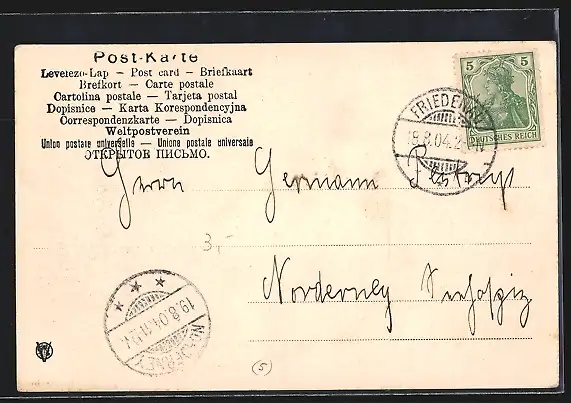 Post-Karte
Levelezo-Lap – Post card – Briefkaart
Brefkort – Carte postale
Cartolina postale – Tarjeta postal
Dopisnice – Karta Korespondencyjna
Correspondenzkarte – Dopisnica
Weltpostverein
Union postale universelle – Unione postale universale
ОТКРЫТОЕ ПИСЬМО.
5 5
DEUTSCHES REICH
FRIEDENAU
19.8.04.
Herrn Hermann
3,-
Norderney Seehospiz
19.8.04.
NORDERNEY
5